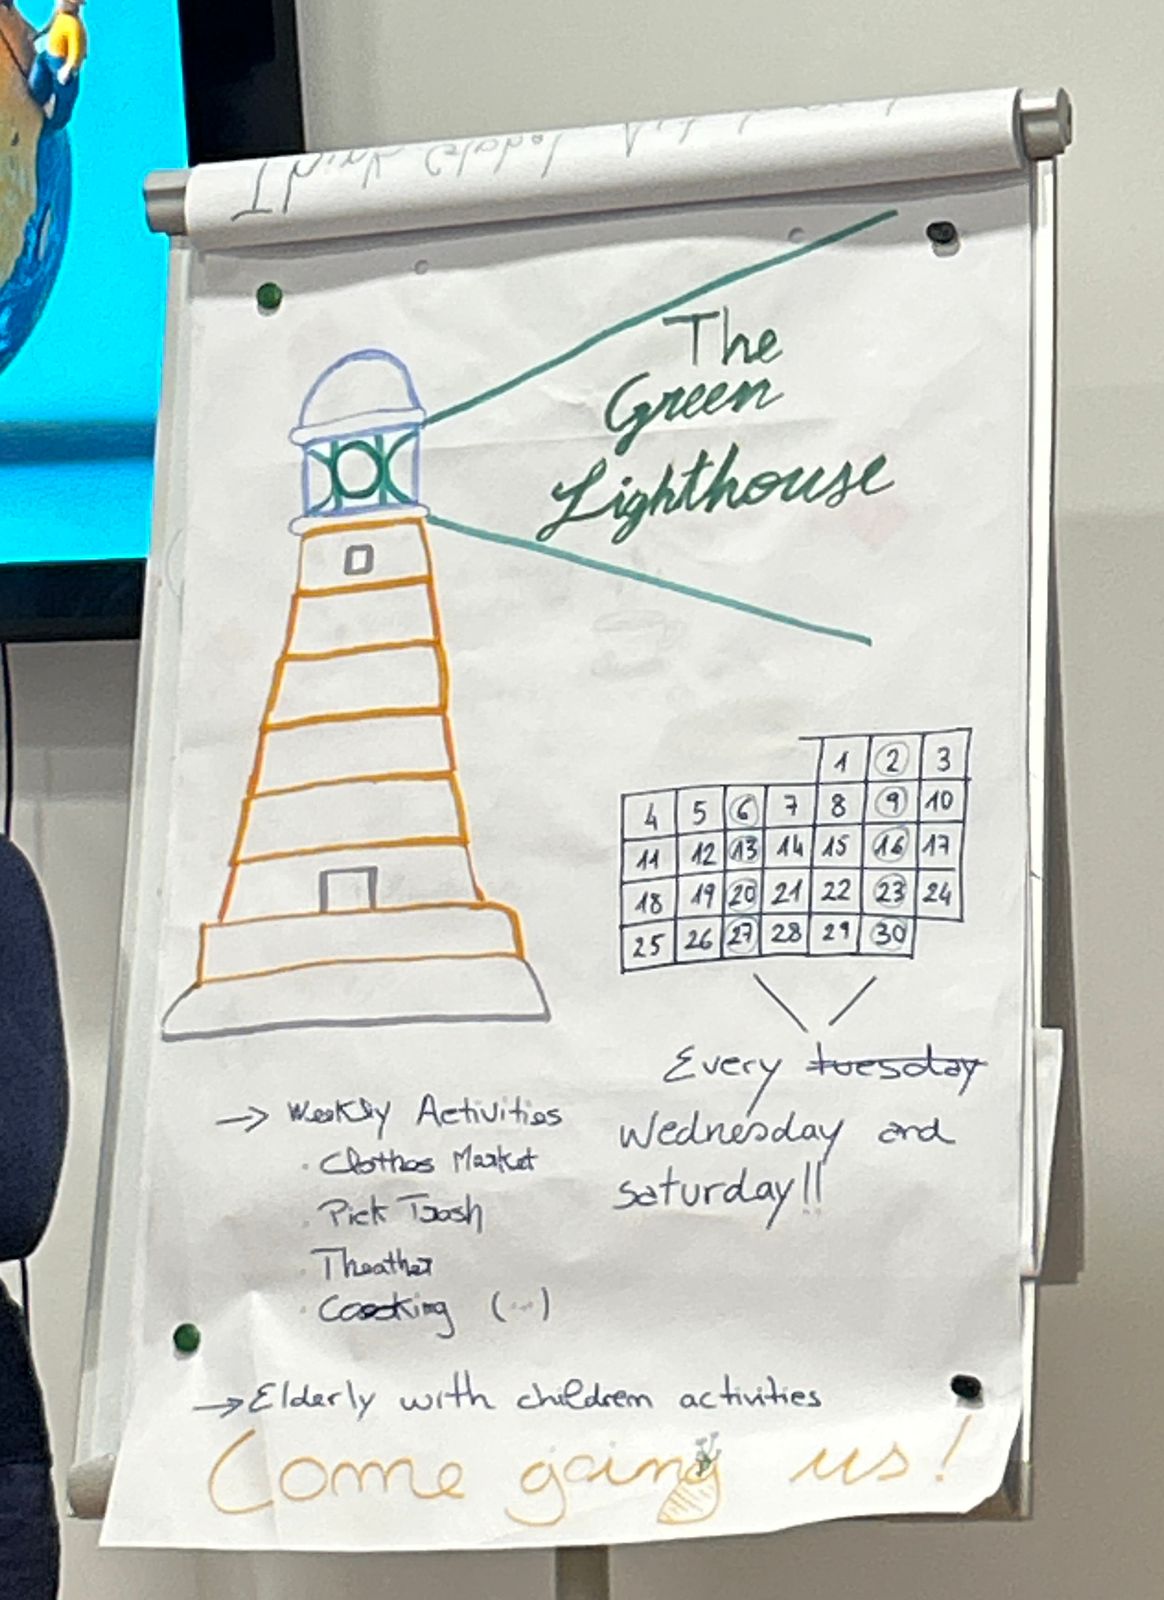 The
Green
Lighthouse
1 2 3
4 5 6 7 8 9 10
11 12 13 14 15 16 17
18 19 20 21 22 23 24
25 26 27 28 29 30
Every tuesday
Wednesday and
saturday!!
→ Weekly Activities
· Clothes Market
· Pick Trash
· Theather
· Cooking (...)
→ Elderly with children activities
Come going us!